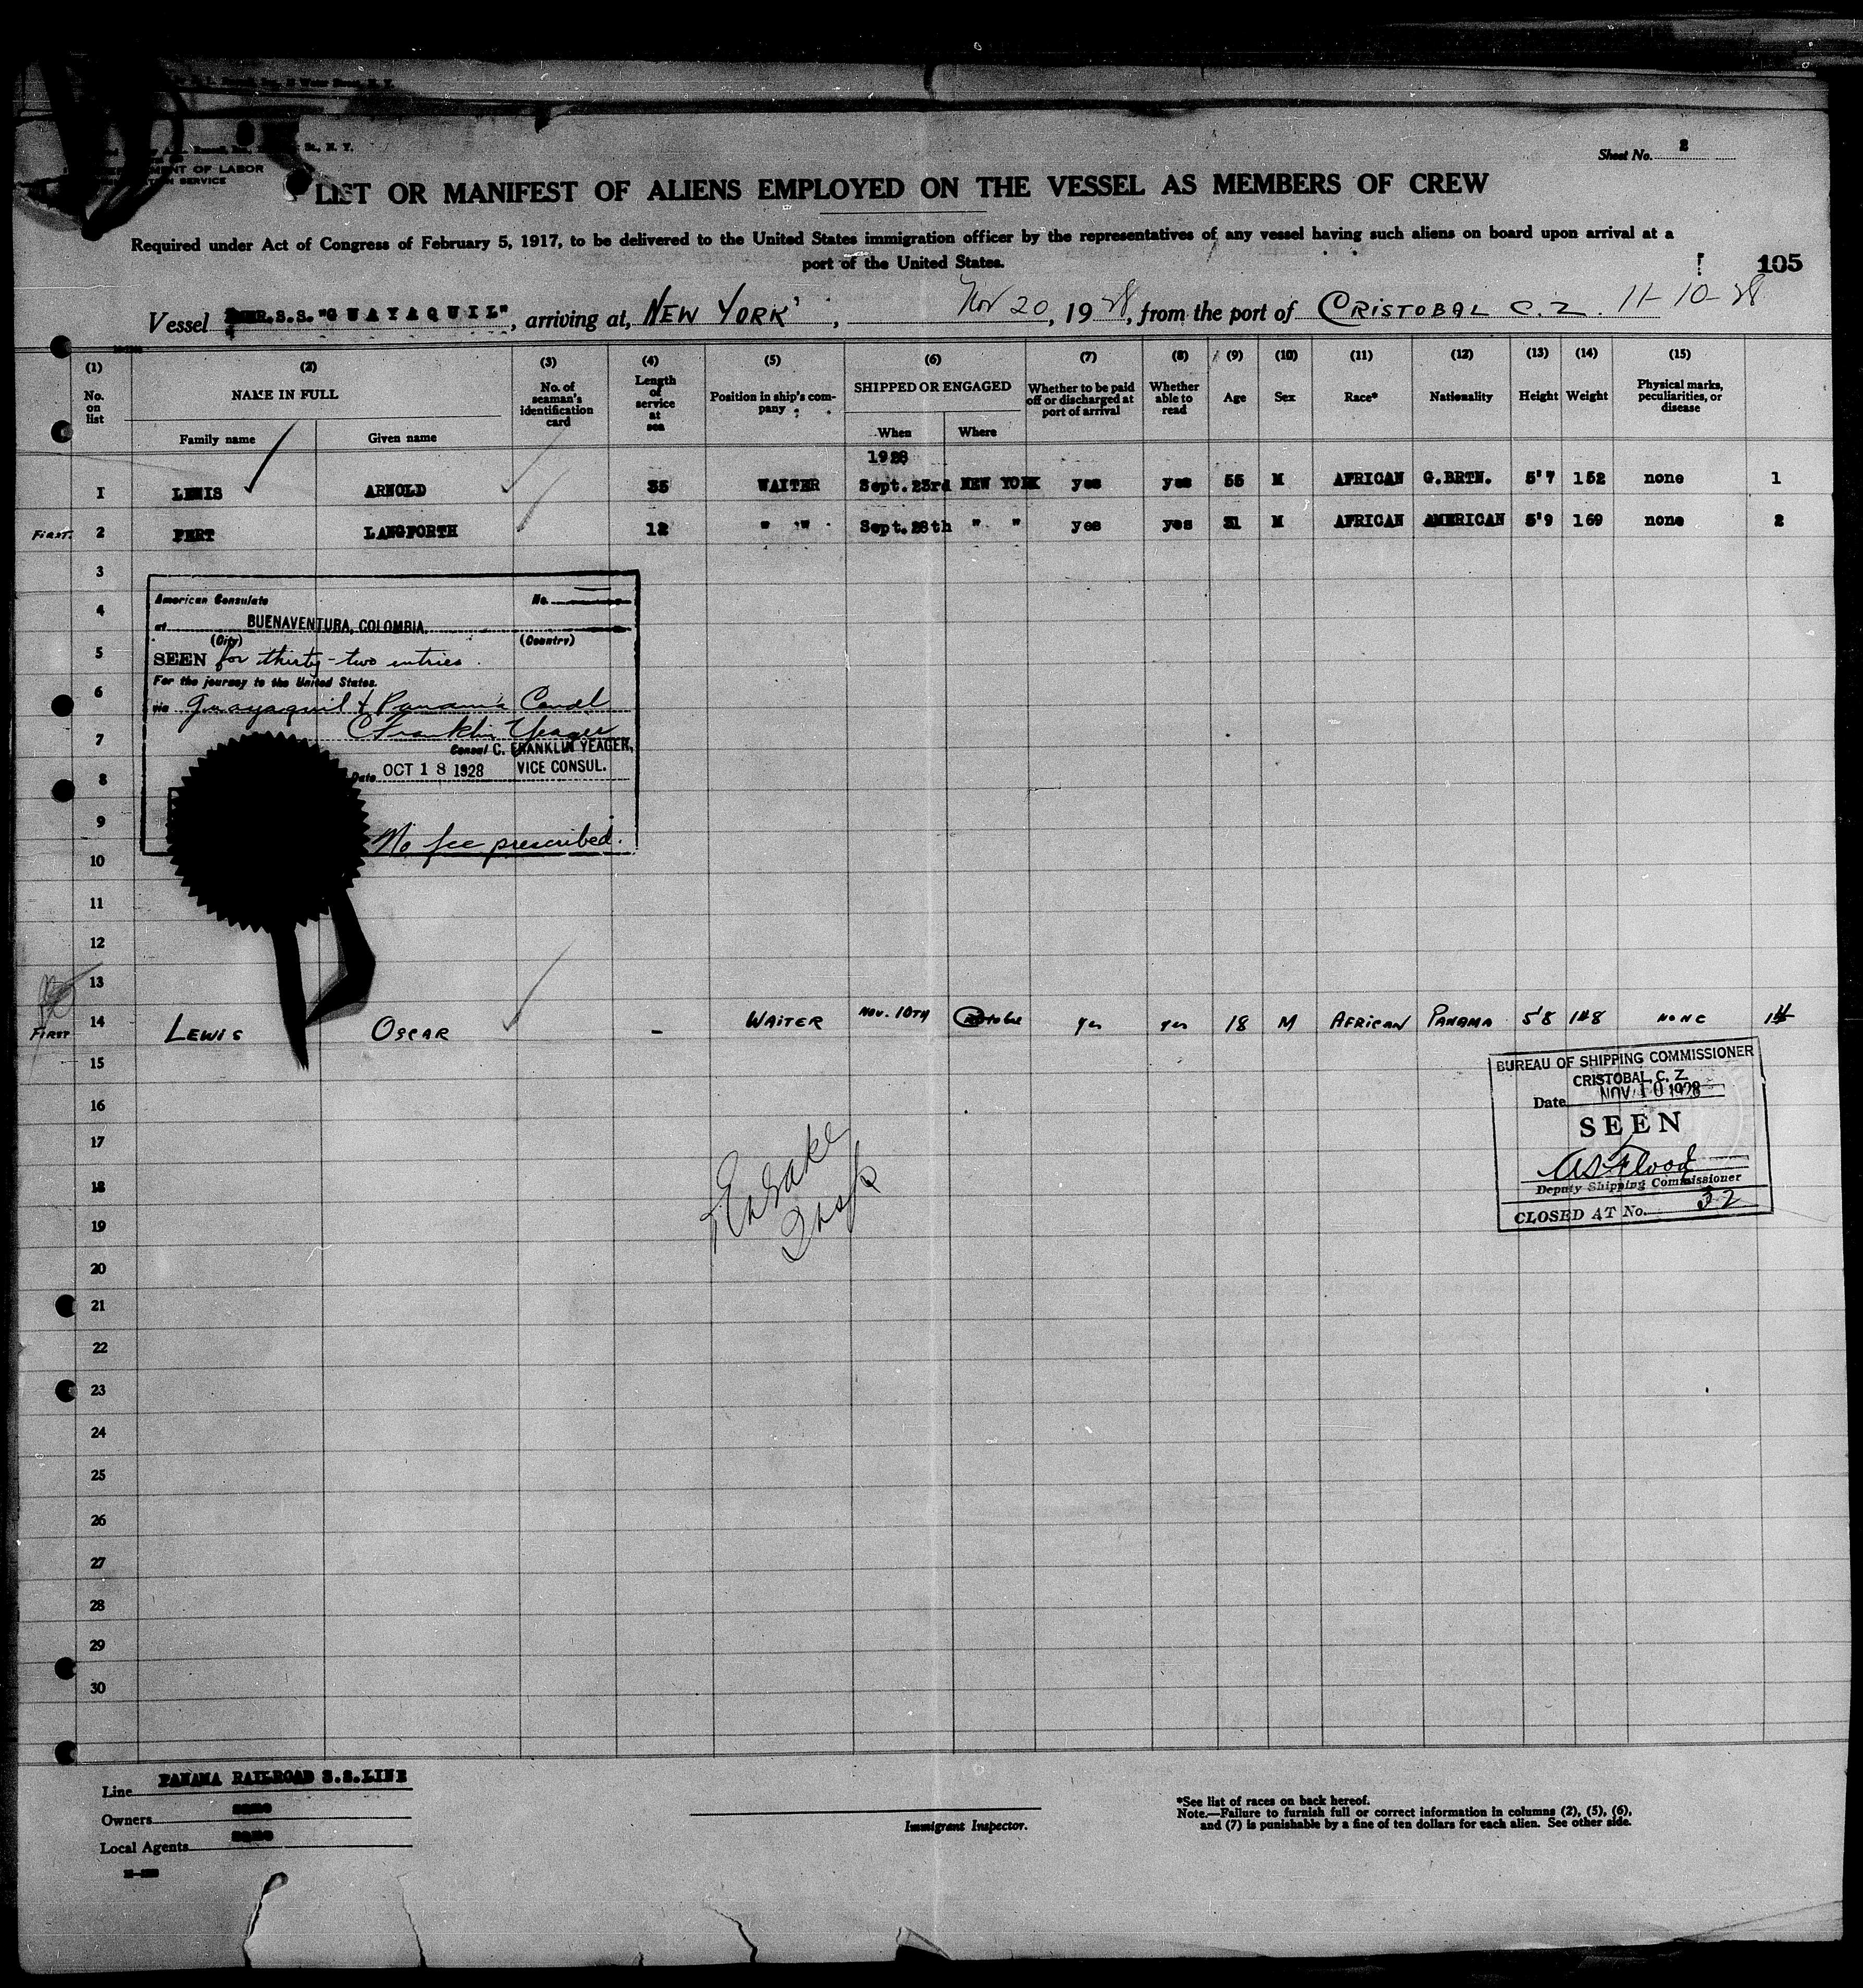 St., N. Y.
MENT OF LABOR
SERVICE
Sheet No. 2
LIST OR MANIFEST OF ALIENS EMPLOYED ON THE VESSEL AS MEMBERS OF CREW
Required under Act of Congress of February 5, 1917, to be delivered to the United States immigration officer by the representatives of any vessel having such aliens on board upon arrival at a
port of the United States.
105
Vessel AMER.S.S. "GUAYAQUIL", arriving at, NEW YORK, Nov 20, 1928, from the port of CRISTOBAL C.Z. 11-10-28
(1) (2) (3) (4) (5) (6) (7) (8) (9) (10) (11) (12) (13) (14) (15)
No. on list
NAME IN FULL
Family name
Given name
No. of seaman's identification card
Length of service at sea
Position in ship's company
SHIPPED OR ENGAGED
When
Where
Whether to be paid off or discharged at port of arrival
Whether able to read
Age
Sex
Race*
Nationality
Height
Weight
Physical marks, peculiarities, or disease
1928
1 LEWIS ARNOLD 35 WAITER Sept. 23rd NEW YORK yes yes 55 M AFRICAN G.BRTN. 5'7 152 none 1
First. 2 PERT LANGFORTH 12 " " Sept. 28th " " yes yes 31 M AFRICAN AMERICAN 5'9 169 none 2
3
4
5
6
7
8
9
10
11
12
13
American Consulate No.
at BUENAVENTURA, COLOMBIA.
(City) (Country)
SEEN for thirty-two entries.
For the journey to the United States.
via Guayaquil & Panama Canal
C Franklin Yeager
Consul C. FRANKLIN YEAGER,
Date OCT 18 1928 VICE CONSUL.
No fee prescribed.
FIRST 14 LEWIS OSCAR - WAITER NOV. 10TH yes yes 18 M AFRICAN PANAMA 5'8 148 NONE 14
15
16
17
18
19
20
21
22
23
24
25
26
27
28
29
30
BUREAU OF SHIPPING COMMISSIONER
CRISTOBAL, C. Z.
Date NOV 10 1928
SEEN
AS Flood
Deputy Shipping Commissioner
CLOSED AT No. 32
Insp
Line PANAMA RAILROAD S.S.LINE
Owners same
Local Agents same
Immigrant Inspector.
*See list of races on back hereof.
Note.—Failure to furnish full or correct information in columns (2), (5), (6),
and (7) is punishable by a fine of ten dollars for each alien. See other side.